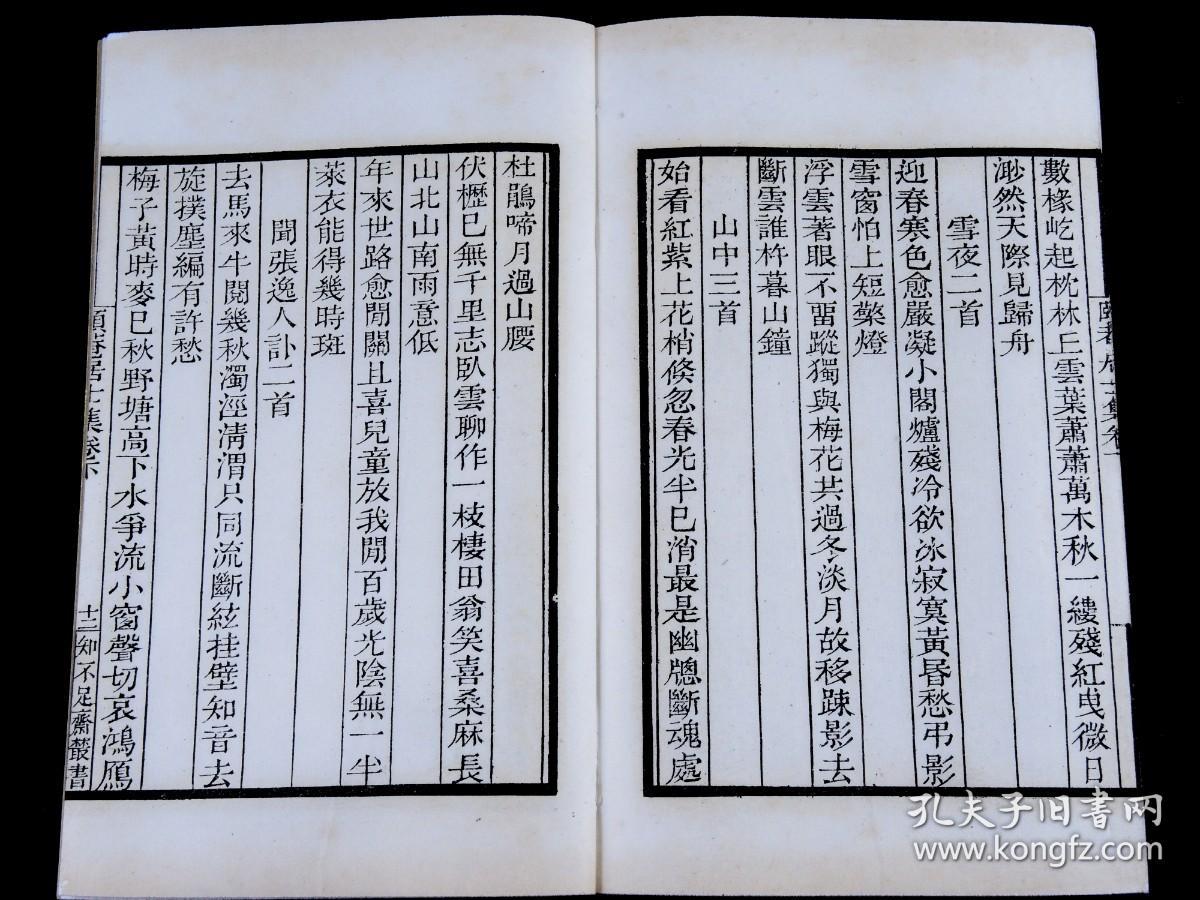 數椽屹起枕林丘雲葉蕭蕭萬木秋一縷殘紅曳微日
渺然天際見歸舟
雪夜二首
迎春寒色愈嚴凝小閣爐殘冷欲冰寂寞黃昬愁弔影
雪窗怕上短檠燈
浮雲著眼不畱蹤獨與梅花共過冬淡月故移疎影去
斷雲誰杵暮山鐘
山中三首
始看紅紫上花梢倐忽春光半已消最是幽牕斷魂處
杜鵑啼月過山腰
伏櫪已無千里志臥雲聊作一枝棲田翁笑喜桑麻長
山北山南雨意低
年來世路愈閒關且喜兒童放我閒百歲光陰無一半
萊衣能得幾時斑
聞張逸人訃二首
去馬來牛閱幾秋濁涇淸渭只同流斷絃挂壁知音去
旋撲塵編有許愁
梅子黃時麥已秋野塘高下水爭流小窗聲切哀鴻鴈
頤菴居士集卷下
十二知不足齋叢書
孔夫子旧书网
www.kongfz.com